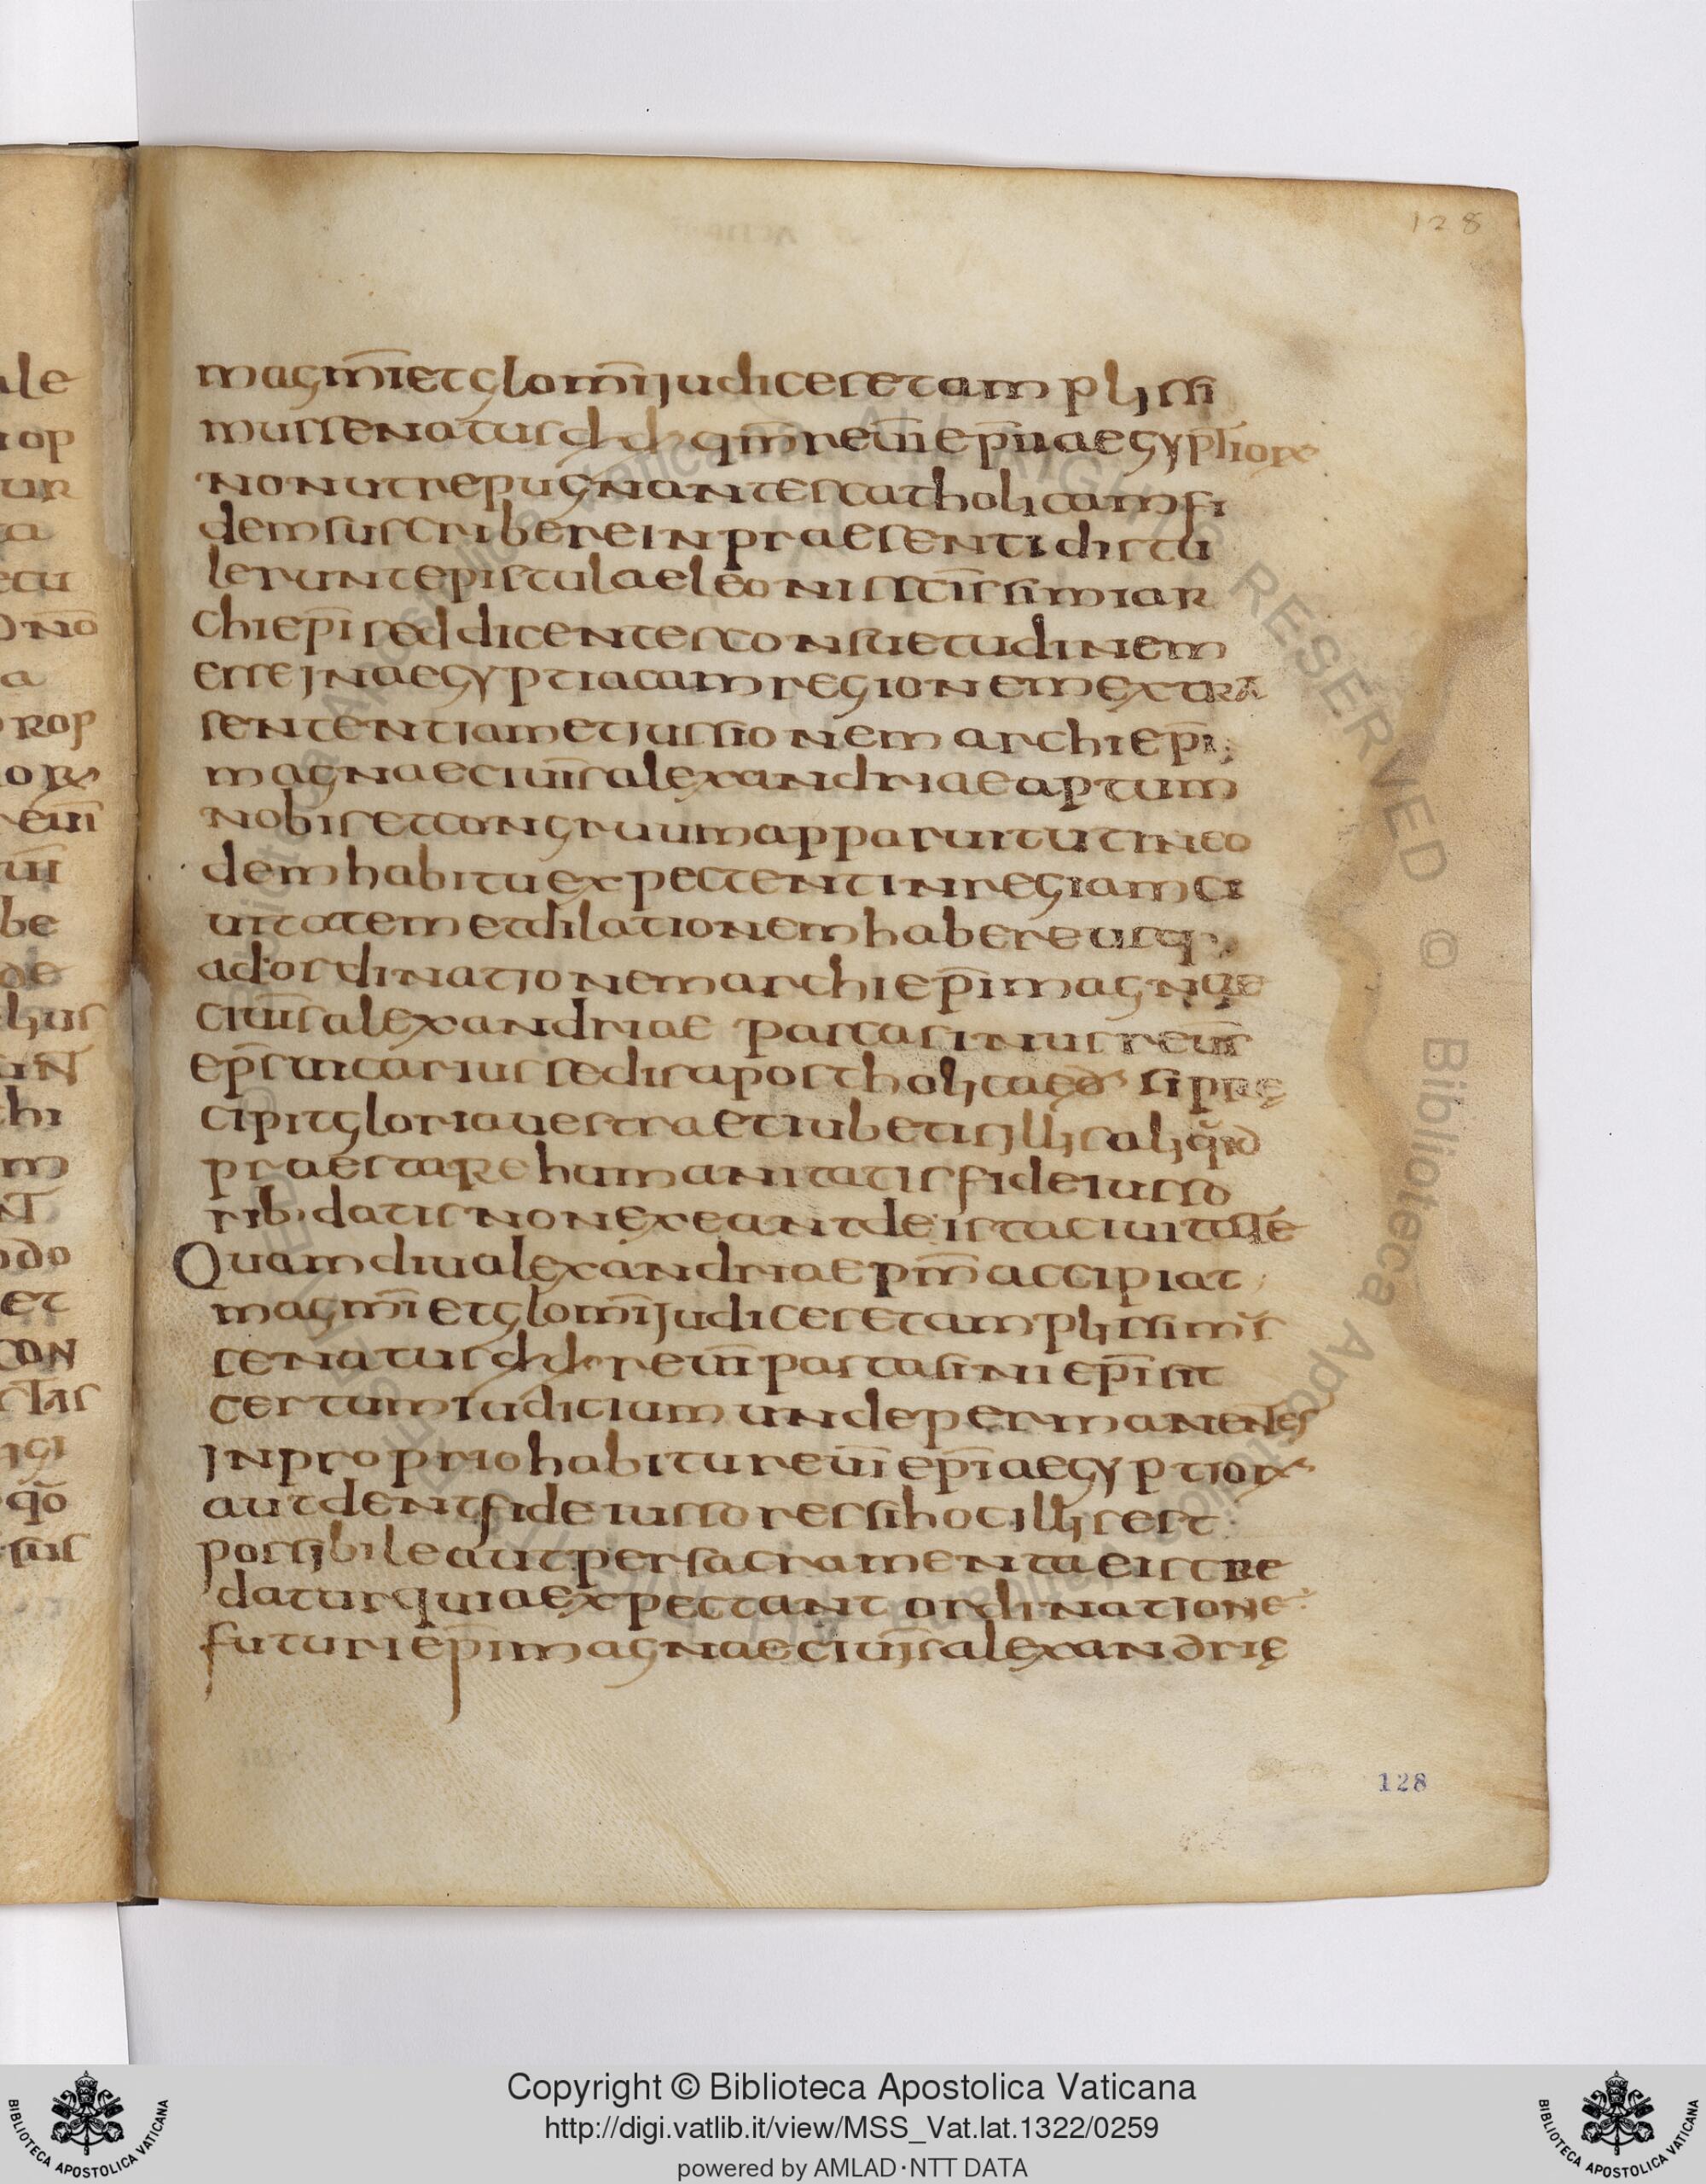 128
magmi̅ etglomi̅ judicesetamplissi
mussenatus dd qm̅reui̅ epi̅i aegyptior
nonutrepugnantescatholicamfi
demsuscribereinpraesentidistu
leruntepistulaeleonissci̅ssimiar
chiepi̅ seddicentesconsuetudinem
esseinaegyptiacamregionemextra
sententiametiussionem archiepi̅;
magnaeciui̅salexandriaeaptum
nobisetcongruumapparuitutineo
demhabituexpectentinregiamci
uitatemetdilationemhabereusq;
adordinationemarchiepi̅magnae
ciui̅salexandriae pascasinusreui̅s
epi̅suicariussedisapostholicaed̅ siprę
cipitgloriauestraetiubetisillisaliqd̅
praestarehumanitatisfideiusso
rib;datisnonexeantdeistaciuitate
Quamdiualexandriaepm̅accipiat;
magmi̅ etglomi̅judicesetamplissim̅s
senatus dd reui̅ pascasini epi̅ sit
certumiudiciumundepermanentes
inpropriohabitureui̅ epi̅aegyptior
autdentfideiussoressihocillisest
possibileautpersacramentaeiscre
daturquiaexpectant ordinatione
futuriepi̅magnaeciui̅salexandrię
128
ale
rop
ur
ta
ectu
no̅
a
rop
or
reui̅
ui̅
be
de
lius
un̅
chi
m
nt
odo
et
con
qo̅
sus
Copyright © Biblioteca Apostolica Vaticana
http://digi.vatlib.it/view/MSS_Vat.lat.1322/0259
powered by AMLAD·NTT DATA
BIBLIOTECA APOSTOLICA VATICANA
BIBLIOTECA APOSTOLICA VATICANA